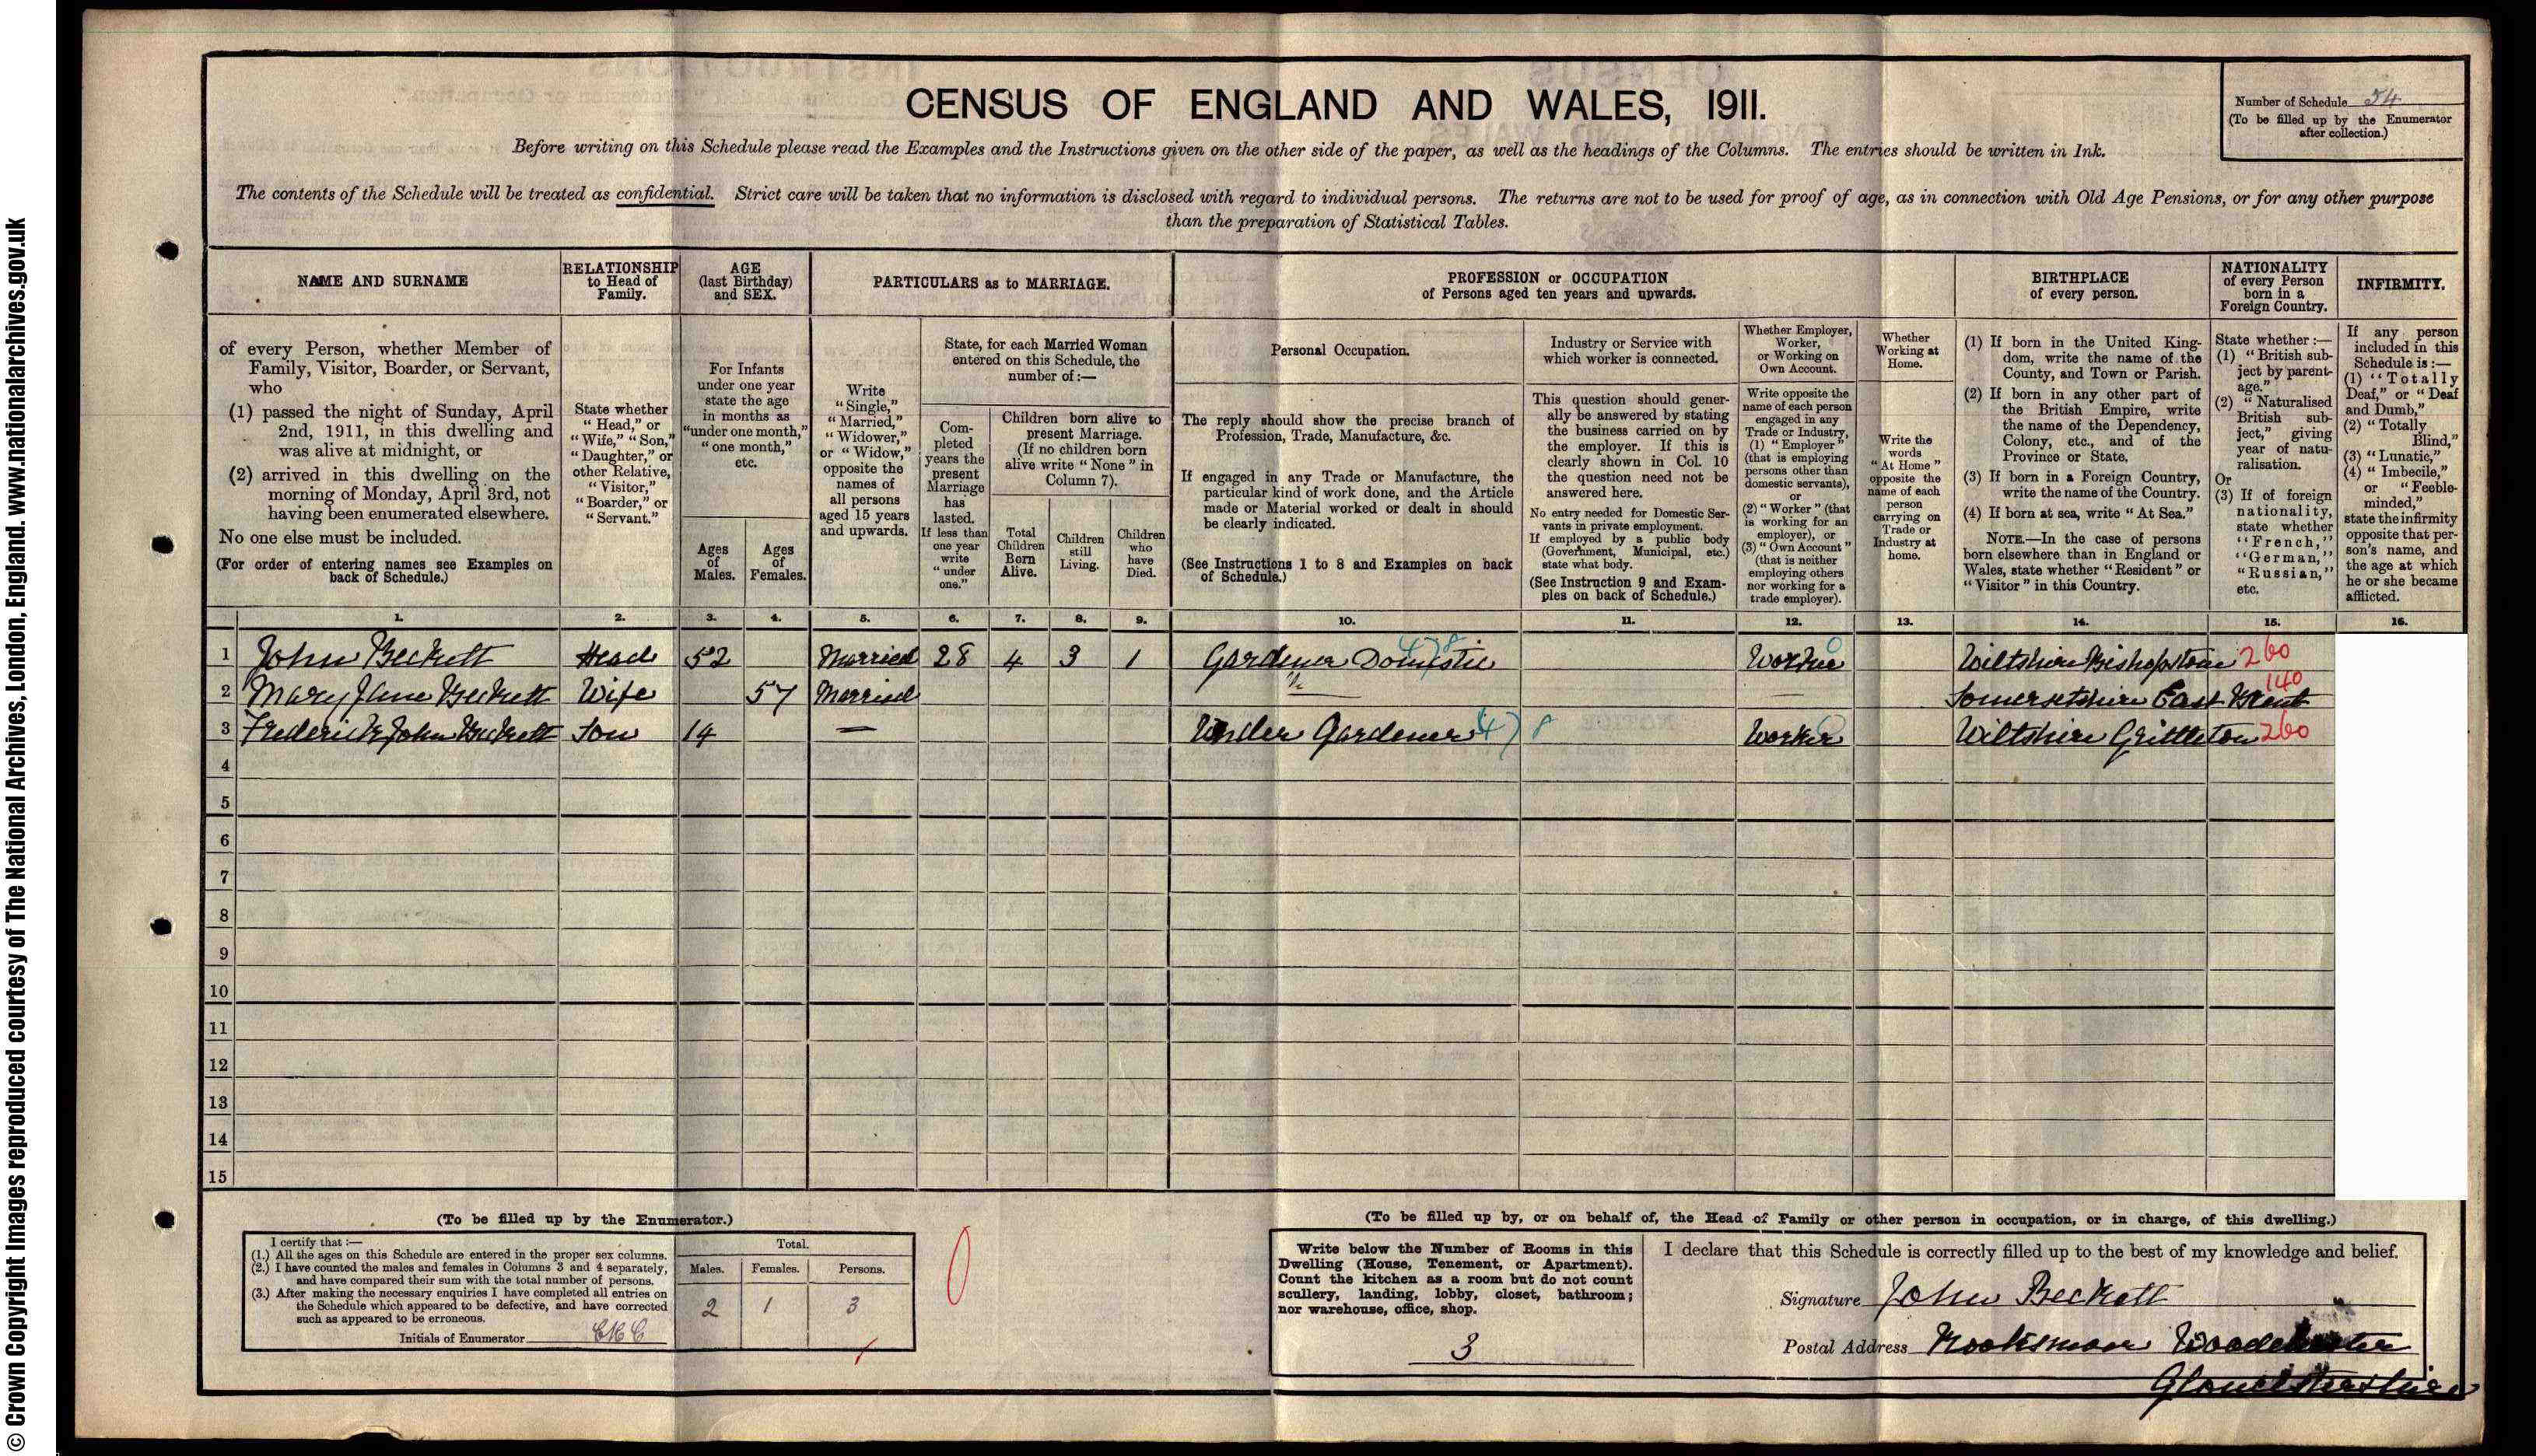 © Crown Copyright Images reproduced courtesy of The National Archives, London, England. www.nationalarchives.gov.uk
CENSUS OF ENGLAND AND WALES, 1911.
Number of Schedule 54
(To be filled up by the Enumerator
after collection.)
Before writing on this Schedule please read the Examples and the Instructions given on the other side of the paper, as well as the headings of the Columns. The entries should be written in Ink.
The contents of the Schedule will be treated as confidential. Strict care will be taken that no information is disclosed with regard to individual persons. The returns are not to be used for proof of age, as in connection with Old Age Pensions, or for any other purpose
than the preparation of Statistical Tables.
NAME AND SURNAME
RELATIONSHIP
to Head of
Family.
AGE
(last Birthday)
and SEX.
PARTICULARS as to MARRIAGE.
PROFESSION or OCCUPATION
of Persons aged ten years and upwards.
BIRTHPLACE
of every person.
NATIONALITY
of every Person
born in a
Foreign Country.
INFIRMITY.
of every Person, whether Member of
Family, Visitor, Boarder, or Servant,
who
(1) passed the night of Sunday, April
2nd, 1911, in this dwelling and
was alive at midnight, or
(2) arrived in this dwelling on the
morning of Monday, April 3rd, not
having been enumerated elsewhere.
No one else must be included.
(For order of entering names see Examples on
back of Schedule.)
State whether
"Head," or
"Wife," "Son,"
"Daughter," or
other Relative,
"Visitor,"
"Boarder," or
"Servant."
For Infants
under one year
state the age
in months as
"under one month,"
"one month,"
etc.
Ages
of
Males.
Ages
of
Females.
Write
"Single,"
"Married,"
"Widower,"
or "Widow,"
opposite the
names of
all persons
aged 15 years
and upwards.
State, for each Married Woman
entered on this Schedule, the
number of :—
Com-
pleted
years the
present
Marriage
has
lasted.
If less than
one year
write
"under
one."
Children born alive to
present Marriage.
(If no children born
alive write "None" in
Column 7).
Total
Children
Born
Alive.
Children
still
Living.
Children
who
have
Died.
Personal Occupation.
The reply should show the precise branch of
Profession, Trade, Manufacture, &c.
If engaged in any Trade or Manufacture, the
particular kind of work done, and the Article
made or Material worked or dealt in should
be clearly indicated.
(See Instructions 1 to 8 and Examples on back
of Schedule.)
Industry or Service with
which worker is connected.
This question should gener-
ally be answered by stating
the business carried on by
the employer. If this is
clearly shown in Col. 10
the question need not be
answered here.
No entry needed for Domestic Ser-
vants in private employment.
If employed by a public body
(Government, Municipal, etc.)
state what body.
(See Instruction 9 and Exam-
ples on back of Schedule.)
Whether Employer,
Worker,
or Working on
Own Account.
Write opposite the
name of each person
engaged in any
Trade or Industry,
(1) "Employer"
(that is employing
persons other than
domestic servants),
or
(2) "Worker" (that
is working for an
employer), or
(3) "Own Account"
(that is neither
employing others
nor working for a
trade employer).
Whether
Working at
Home.
Write the
words
"At Home"
opposite the
name of each
person
carrying on
Trade or
Industry at
home.
(1) If born in the United King-
dom, write the name of the
County, and Town or Parish.
(2) If born in any other part of
the British Empire, write
the name of the Dependency,
Colony, etc., and of the
Province or State.
(3) If born in a Foreign Country,
write the name of the Country.
(4) If born at sea, write "At Sea."
NOTE.—In the case of persons
born elsewhere than in England or
Wales, state whether "Resident" or
"Visitor" in this Country.
State whether :—
(1) "British sub-
ject by parent-
age."
(2) "Naturalised
British sub-
ject," giving
year of natu-
ralisation.
Or
(3) If of foreign
nationality,
state whether
"French,"
"German,"
"Russian,"
etc.
If any person
included in this
Schedule is :—
(1) "Totally
Deaf," or "Deaf
and Dumb,"
(2) "Totally
Blind,"
(3) "Lunatic,"
(4) "Imbecile,"
or "Feeble-
minded,"
state the infirmity
opposite that per-
son's name, and
the age at which
he or she became
afflicted.
1. 2. 3. 4. 5. 6. 7. 8. 9. 10. 11. 12. 13. 14. 15. 16.
1 John Beckett Head 52 Married 28 4 3 1 Gardener Domestic 478 Worker 0 Wiltshire Bishopstone 260
2 Mary Jane Beckett Wife 57 Married — Somersetshire East Brent 140
3 Frederick John Beckett Son 14 — Under Gardener 478 Worker 0 Wiltshire Grittleton 260
4
5
6
7
8
9
10
11
12
13
14
15
(To be filled up by the Enumerator.)
I certify that :—
(1.) All the ages on this Schedule are entered in the proper sex columns.
(2.) I have counted the males and females in Columns 3 and 4 separately,
and have compared their sum with the total number of persons.
(3.) After making the necessary enquiries I have completed all entries on
the Schedule which appeared to be defective, and have corrected
such as appeared to be erroneous.
Initials of Enumerator
Total.
Males. Females. Persons.
2 1 3
0
(To be filled up by, or on behalf of, the Head of Family or other person in occupation, or in charge, of this dwelling.)
Write below the Number of Rooms in this
Dwelling (House, Tenement, or Apartment).
Count the kitchen as a room but do not count
scullery, landing, lobby, closet, bathroom;
nor warehouse, office, shop.
3
I declare that this Schedule is correctly filled up to the best of my knowledge and belief.
Signature John Beckett
Postal Address Rooksmoor Woodchester
Gloucestershire